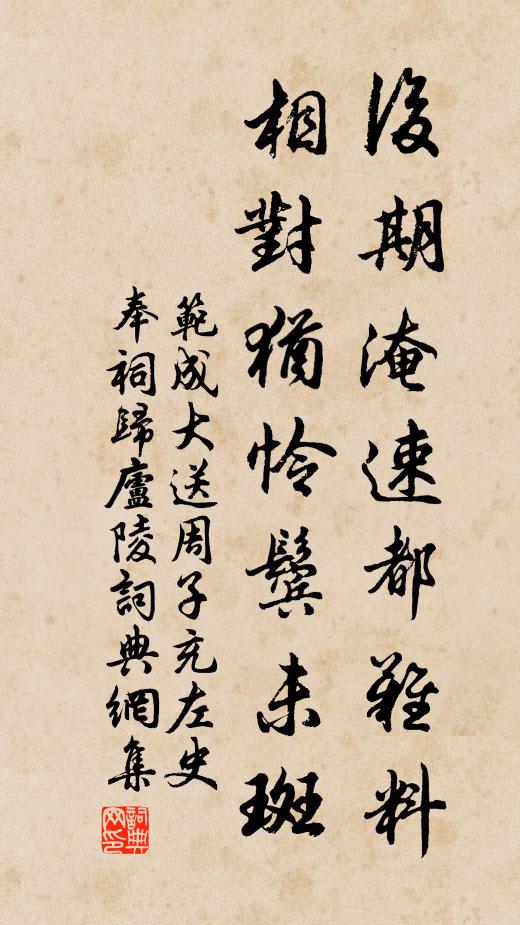 後期淹速都難料
相對猶怜鬓未斑
範成大送周子充左史
奉祠歸廬陵詞典網集
詞典网印